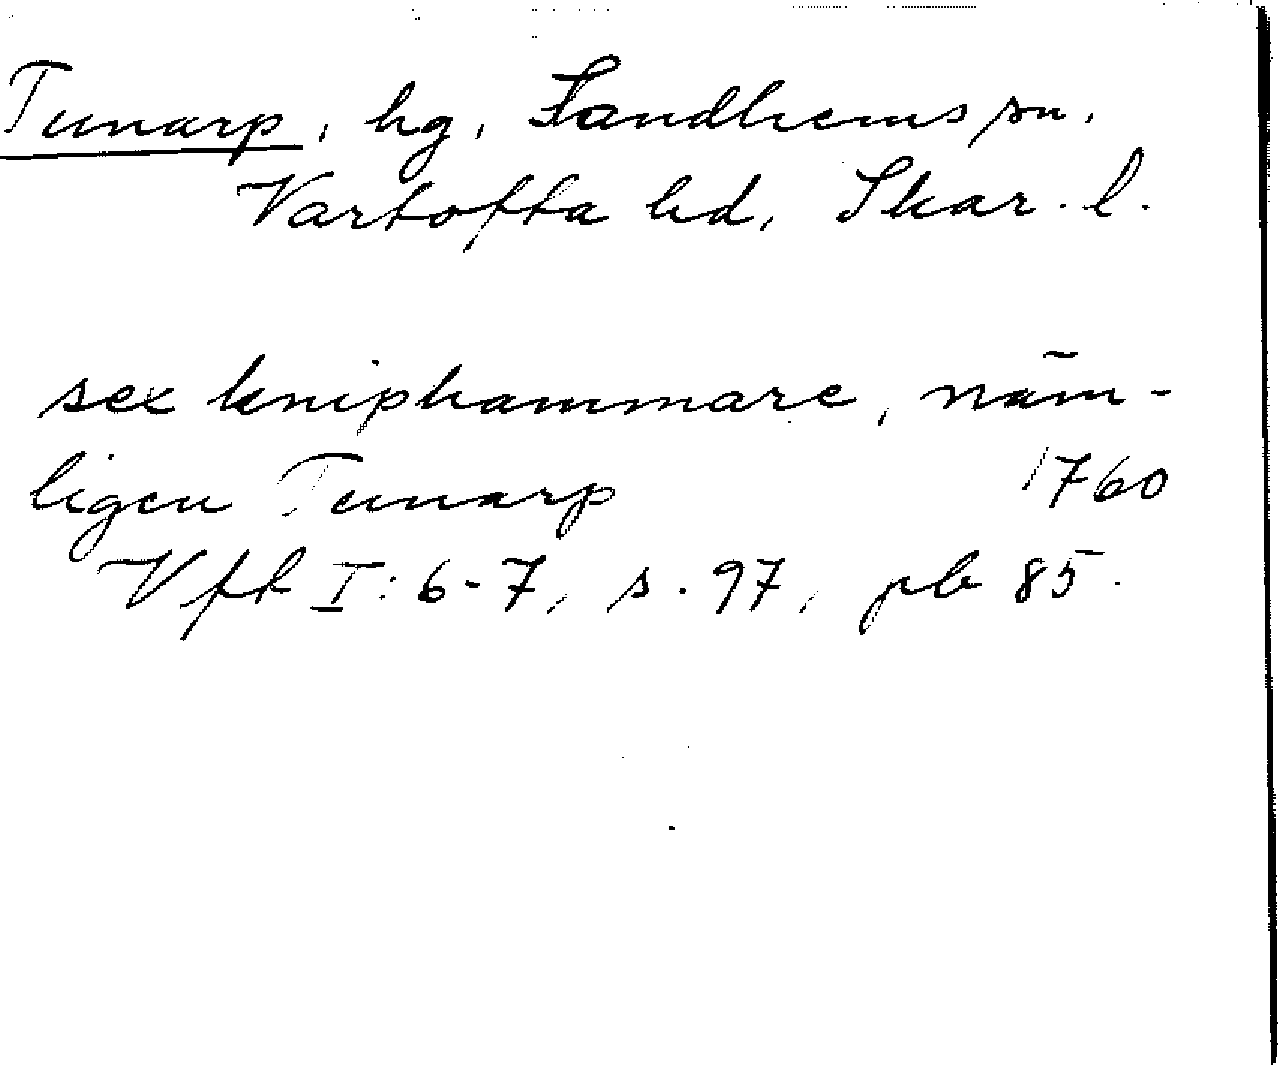 Tunarp, hg, Sandhems sn.
Vartofta hd, Skar. l.
sex kniphammare, näm-
ligen Tunarp 1760
Vft I:6-7, s. 97, pb 85.